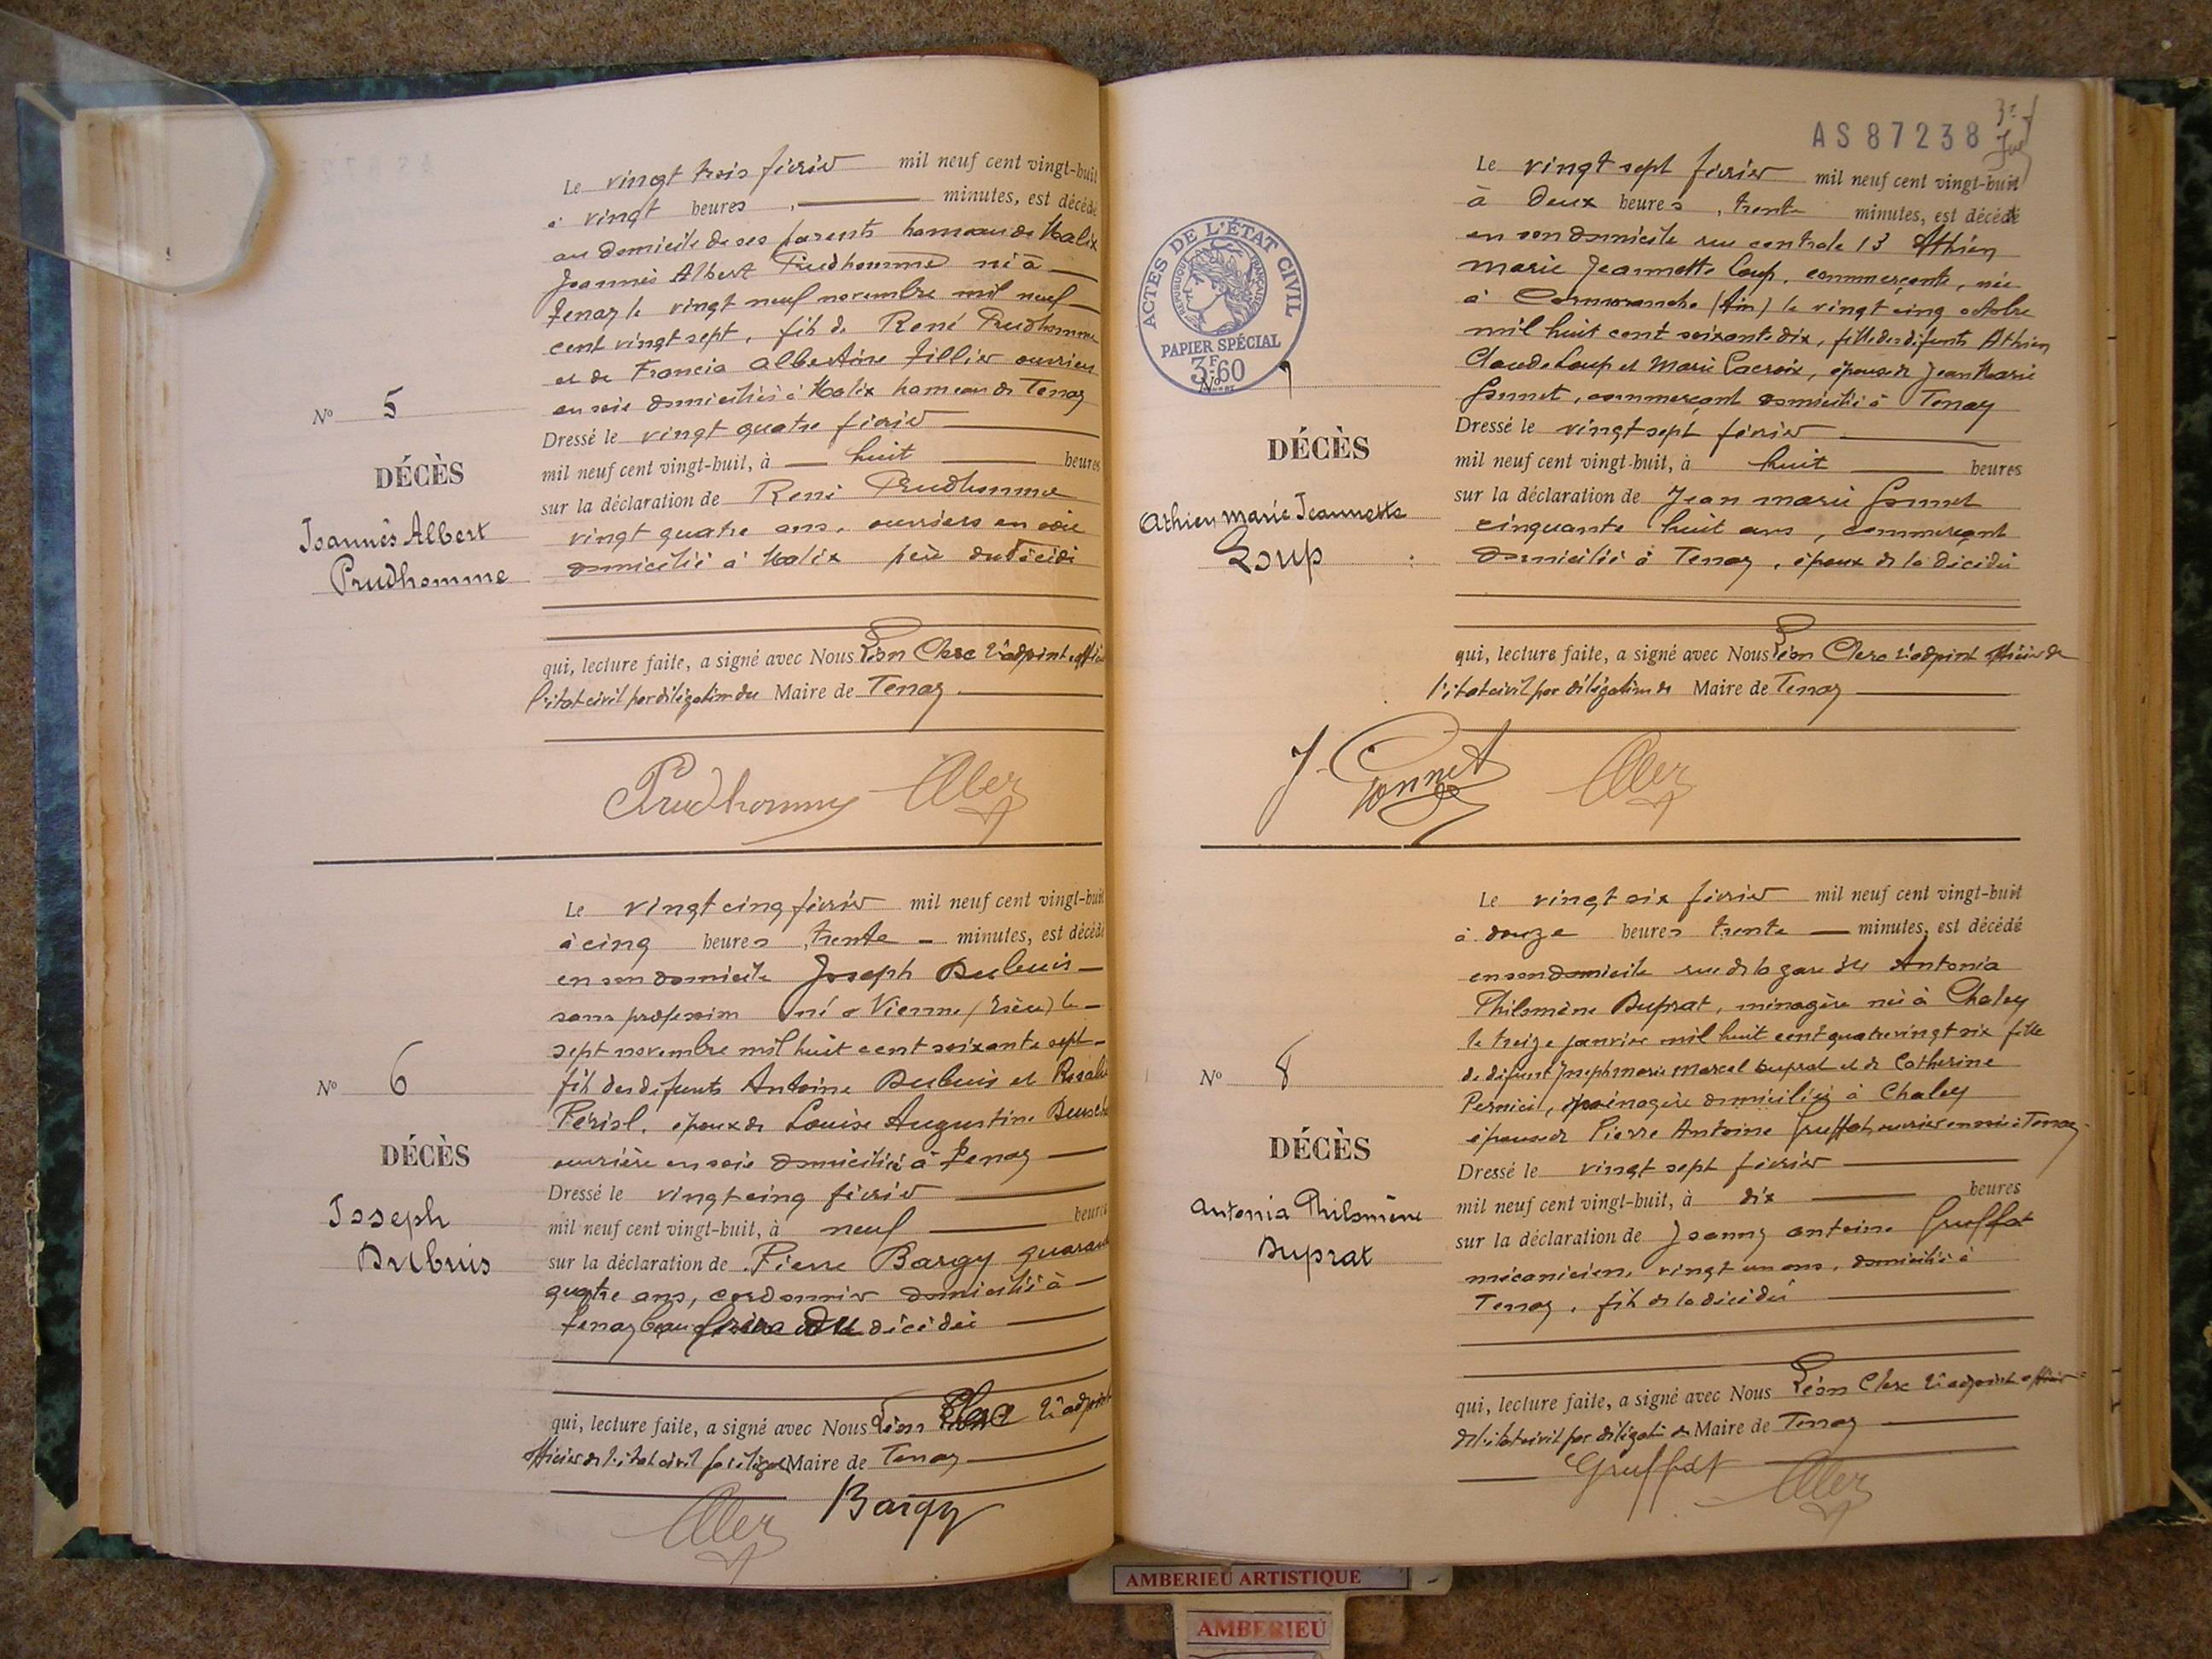 Le vingt trois février mil neuf cent vingt-huit
à vingt heures, minutes, est décédé
au domicile de ses parents hameau de Malix
Joannès Albert Prudhomme né à
Tenay le vingt neuf novembre mil neuf
cent vingt sept, fils de René Prudhomme
et de Francia Albertine Tillier ouvriers
en soie domiciliés à Malix hameau de Tenay
Nº 5
Dressé le vingt quatre février
mil neuf cent vingt-huit, à huit heures
DÉCÈS
sur la déclaration de René Prudhomme
Joannès Albert
Prudhomme
vingt quatre ans, ouvriers en soie
domicilié à Malix père du décédé
qui, lecture faite, a signé avec Nous Léon Clerc 2e adjoint officier
l'état civil par délégation du Maire de Tenay
Prudhomme Clerc
Le vingt cinq février mil neuf cent vingt-huit
à cinq heures, trente minutes, est décédé
en son domicile Joseph Dubuis
sans profession né à Vienne (Isère) le
sept novembre mil huit cent soixante sept
Nº 6
fils des défunts Antoine Dubuis et Rosalie
Périol, époux de Louise Augustine
ouvrière en soie domiciliée à Tenay
DÉCÈS
Joseph
Dubuis
Dressé le vingt cinq février
mil neuf cent vingt-huit, à neuf heures
sur la déclaration de Pierre Bargy quarante
quatre ans, cordonnier domicilié à
Tenay beau frère du décédé
qui, lecture faite, a signé avec Nous Léon Clerc 2e adjoint
officier de l'état civil Maire de Tenay
Clerc Bargy
AS87238
Le vingt sept février mil neuf cent vingt-huit
à deux heures, trente minutes, est décédé
en son domicile rue centrale 13 Athien
Marie Jeannette Loup, commerçante, née
à Cormoranche (Ain) le vingt cinq octobre
mil huit cent soixante dix, fille des défunts Athien
Claude Loup et Marie Lacroix, épouse de Jean Marie
Gonnet, commerçant domicilié à Tenay
ACTES DE L'ÉTAT CIVIL
RÉPUBLIQUE FRANÇAISE
PAPIER SPÉCIAL
3F.60
Nº 7
DÉCÈS
Athien Marie Jeannette
Loup
Dressé le vingt sept février
mil neuf cent vingt-huit, à huit heures
sur la déclaration de Jean Marie Gonnet
cinquante huit ans, commerçant
domicilié à Tenay, époux de la décédée
qui, lecture faite, a signé avec Nous Léon Clerc 2e adjoint officier de
l'état civil par délégation du Maire de Tenay
J. Gonnet Clerc
Le vingt six février mil neuf cent vingt-huit
à douze heures trente minutes, est décédé
en son domicile rue de la gare Antonia
Philomène Duprat, ménagère née à Chaley
le treize janvier mil huit cent quatre vingt six fille
de défunt Joseph Marie Marcel Duprat et de Catherine
Nº 8
Pernicil, ménagère domiciliée à Chaley
épouse de Pierre Antoine Gruffat, ouvrier en soie à Tenay
DÉCÈS
Antonia Philomène
Duprat
Dressé le vingt sept février
mil neuf cent vingt-huit, à dix heures
sur la déclaration de Joanny Antoine Gruffat
mécanicien, vingt un ans, domicilié à
Tenay, fils de la décédée
qui, lecture faite, a signé avec Nous Léon Clerc 2e adjoint officier
de l'état civil par délégation du Maire de Tenay
Gruffat Clerc
AMBERIEU ARTISTIQUE
AMBERIEU